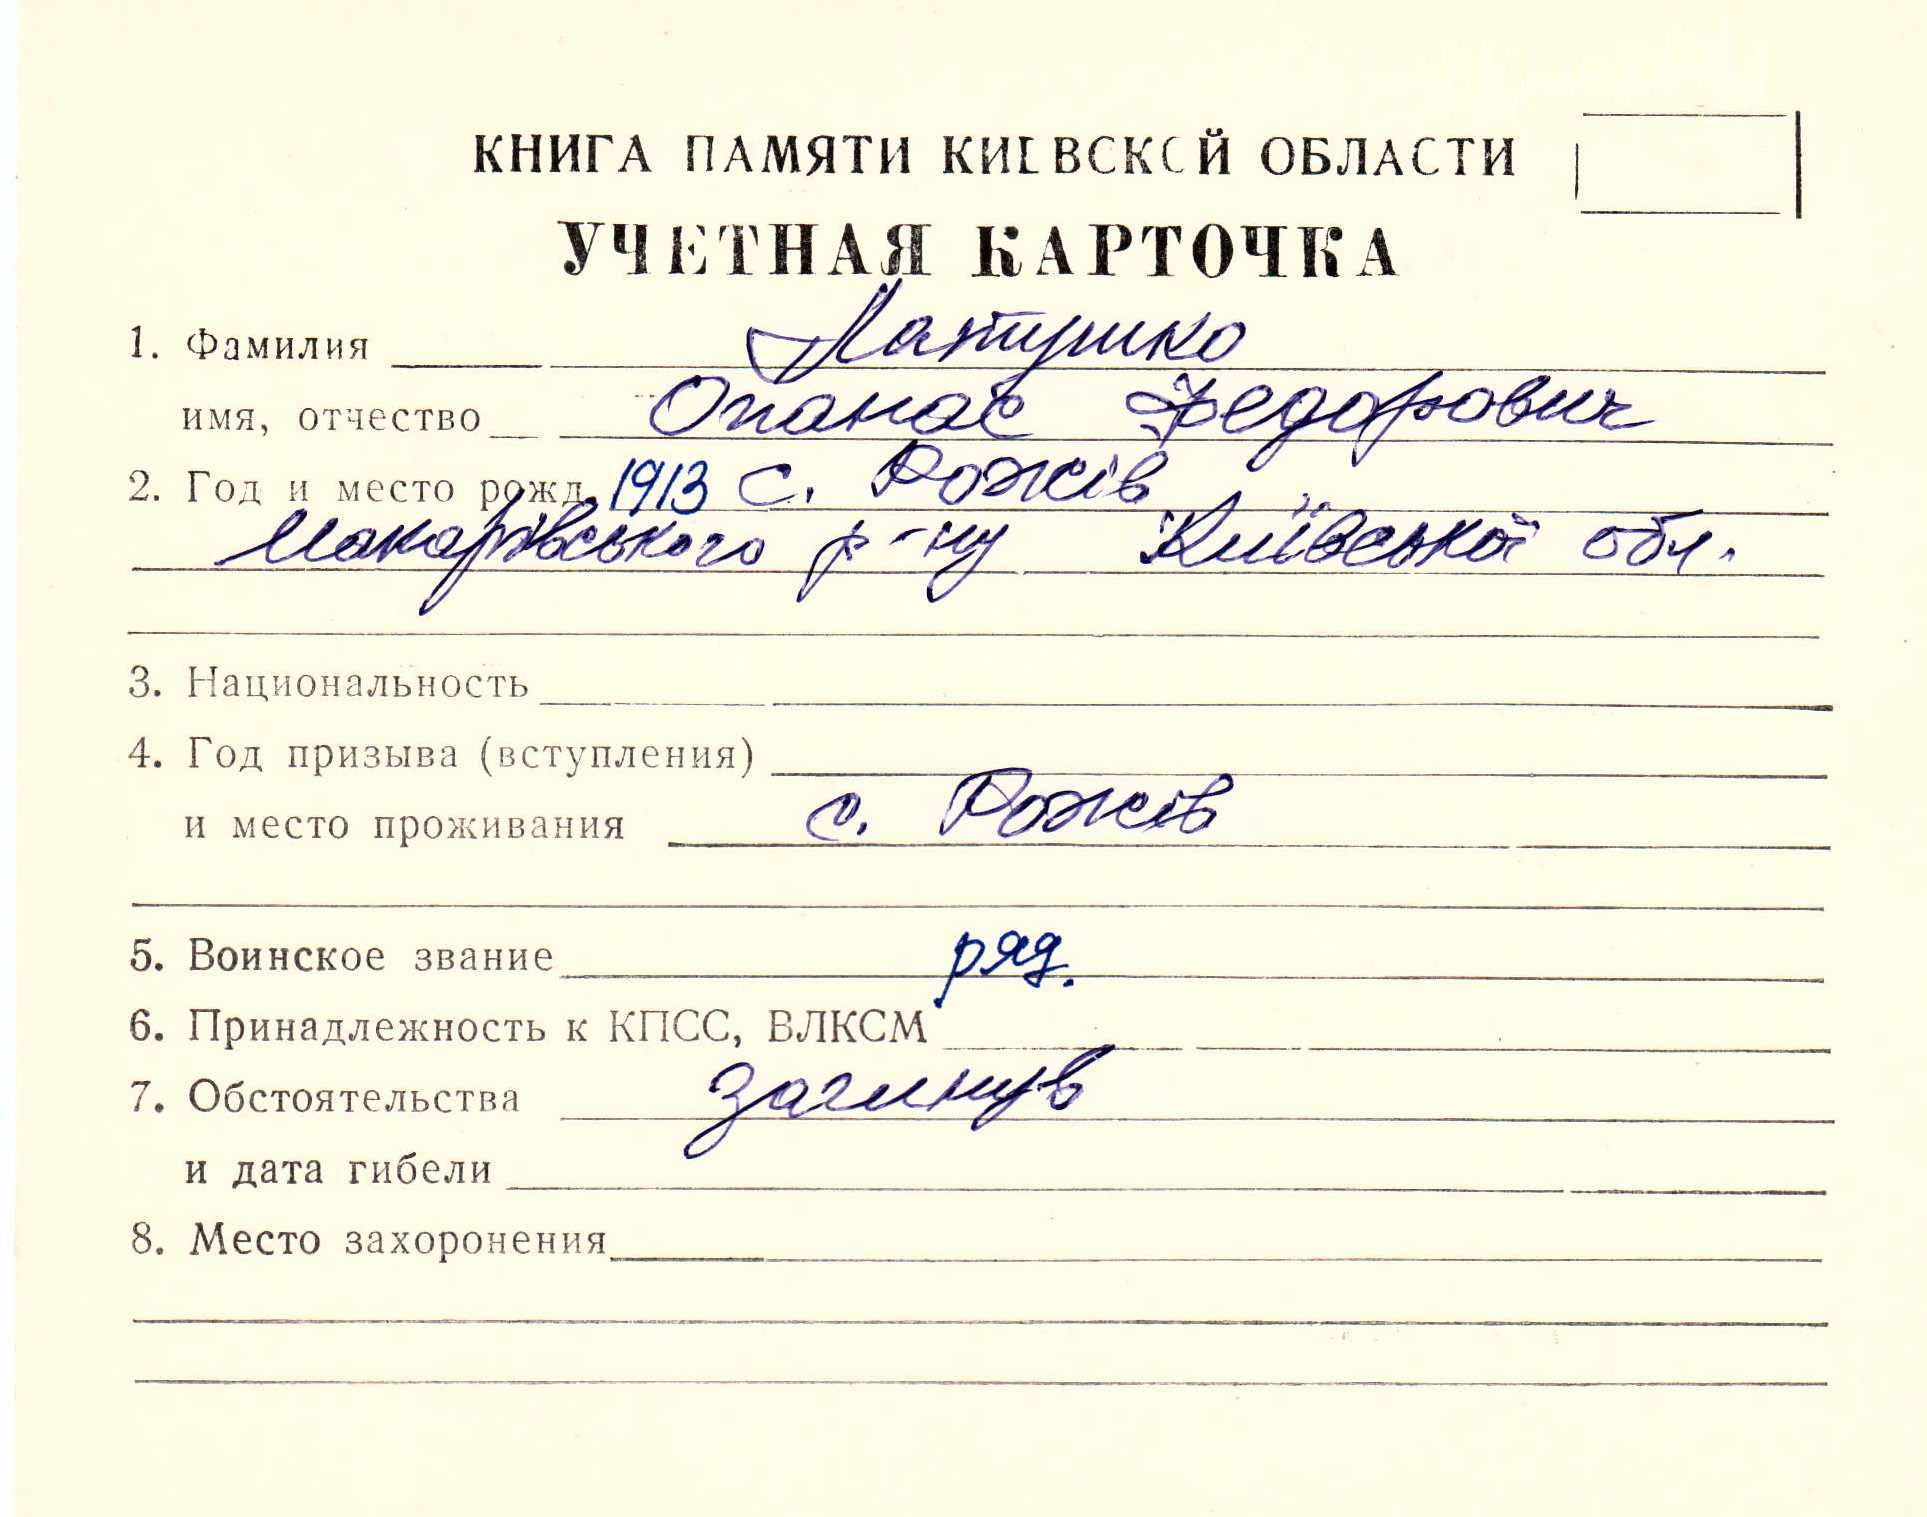 КНИГА ПАМЯТИ КИЕВСКОЙ ОБЛАСТИ
УЧЕТНАЯ КАРТОЧКА
1. Фамилия Латушко
имя, отчество Опанас Федорович
2. Год и место рожд. 1913 с. Рожів
Макарівського р-ну Київської обл.
3. Национальность
4. Год призыва (вступления)
и место проживания с. Рожів
5. Воинское звание ряд.
6. Принадлежность к КПСС, ВЛКСМ
7. Обстоятельства загинув
и дата гибели
8. Место захоронения